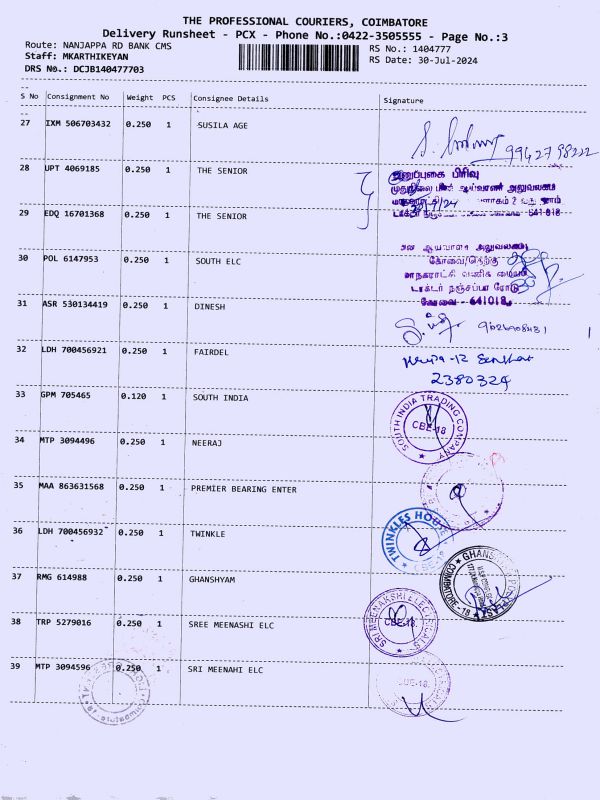 THE PROFESSIONAL COURIERS, COIMBATORE
Delivery Runsheet - PCX - Phone No.:0422-3505555 - Page No.:3
Route: NANJAPPA RD BANK CMS
RS No.: 1404777
Staff: MKARTHIKEYAN
RS Date: 30-Jul-2024
DRS No.: DCJB140477703
S No Consignment No Weight PCS Consignee Details Signature
27 IXM 506703432 0.250 1 SUSILA AGE
9942798222
28 UPT 4069185 0.250 1 THE SENIOR
அனுப்புகை பிரிவு
29 EDQ 16701368 0.250 1 THE SENIOR
30 POL 6147953 0.250 1 SOUTH ELC
கோவை/தெற்கு
டாக்டர் நஞ்சப்பா ரோடு
கோவை - 641018
31 ASR 530134419 0.250 1 DINESH
32 LDH 700456921 0.250 1 FAIRDEL
2380324
33 GPM 705465 0.120 1 SOUTH INDIA
SOUTH INDIA TRADING COMPANY
CBE-18
34 MTP 3094496 0.250 1 NEERAJ
35 MAA 863631568 0.250 1 PREMIER BEARING ENTER
36 LDH 700456932 0.250 1 TWINKLE
TWINKLES HOUSE
CBE-18
37 RMG 614988 0.250 1 GHANSHYAM
COIMBATORE-18
38 TRP 5279016 0.250 1 SREE MEENASHI ELC
SRI MEENAKSHI ELECTRICALS
CBE-18.
39 MTP 3094596 0.250 1 SRI MEENAHI ELC